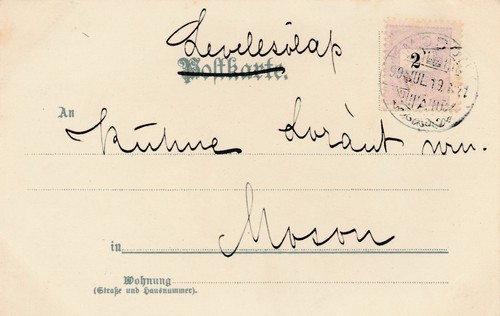 Levelezőlap
Postkarte.
2
99 JUL. 19
An
Kühne Loránt urn.
in Moson
Wohnung
(Straße und Hausnummer).